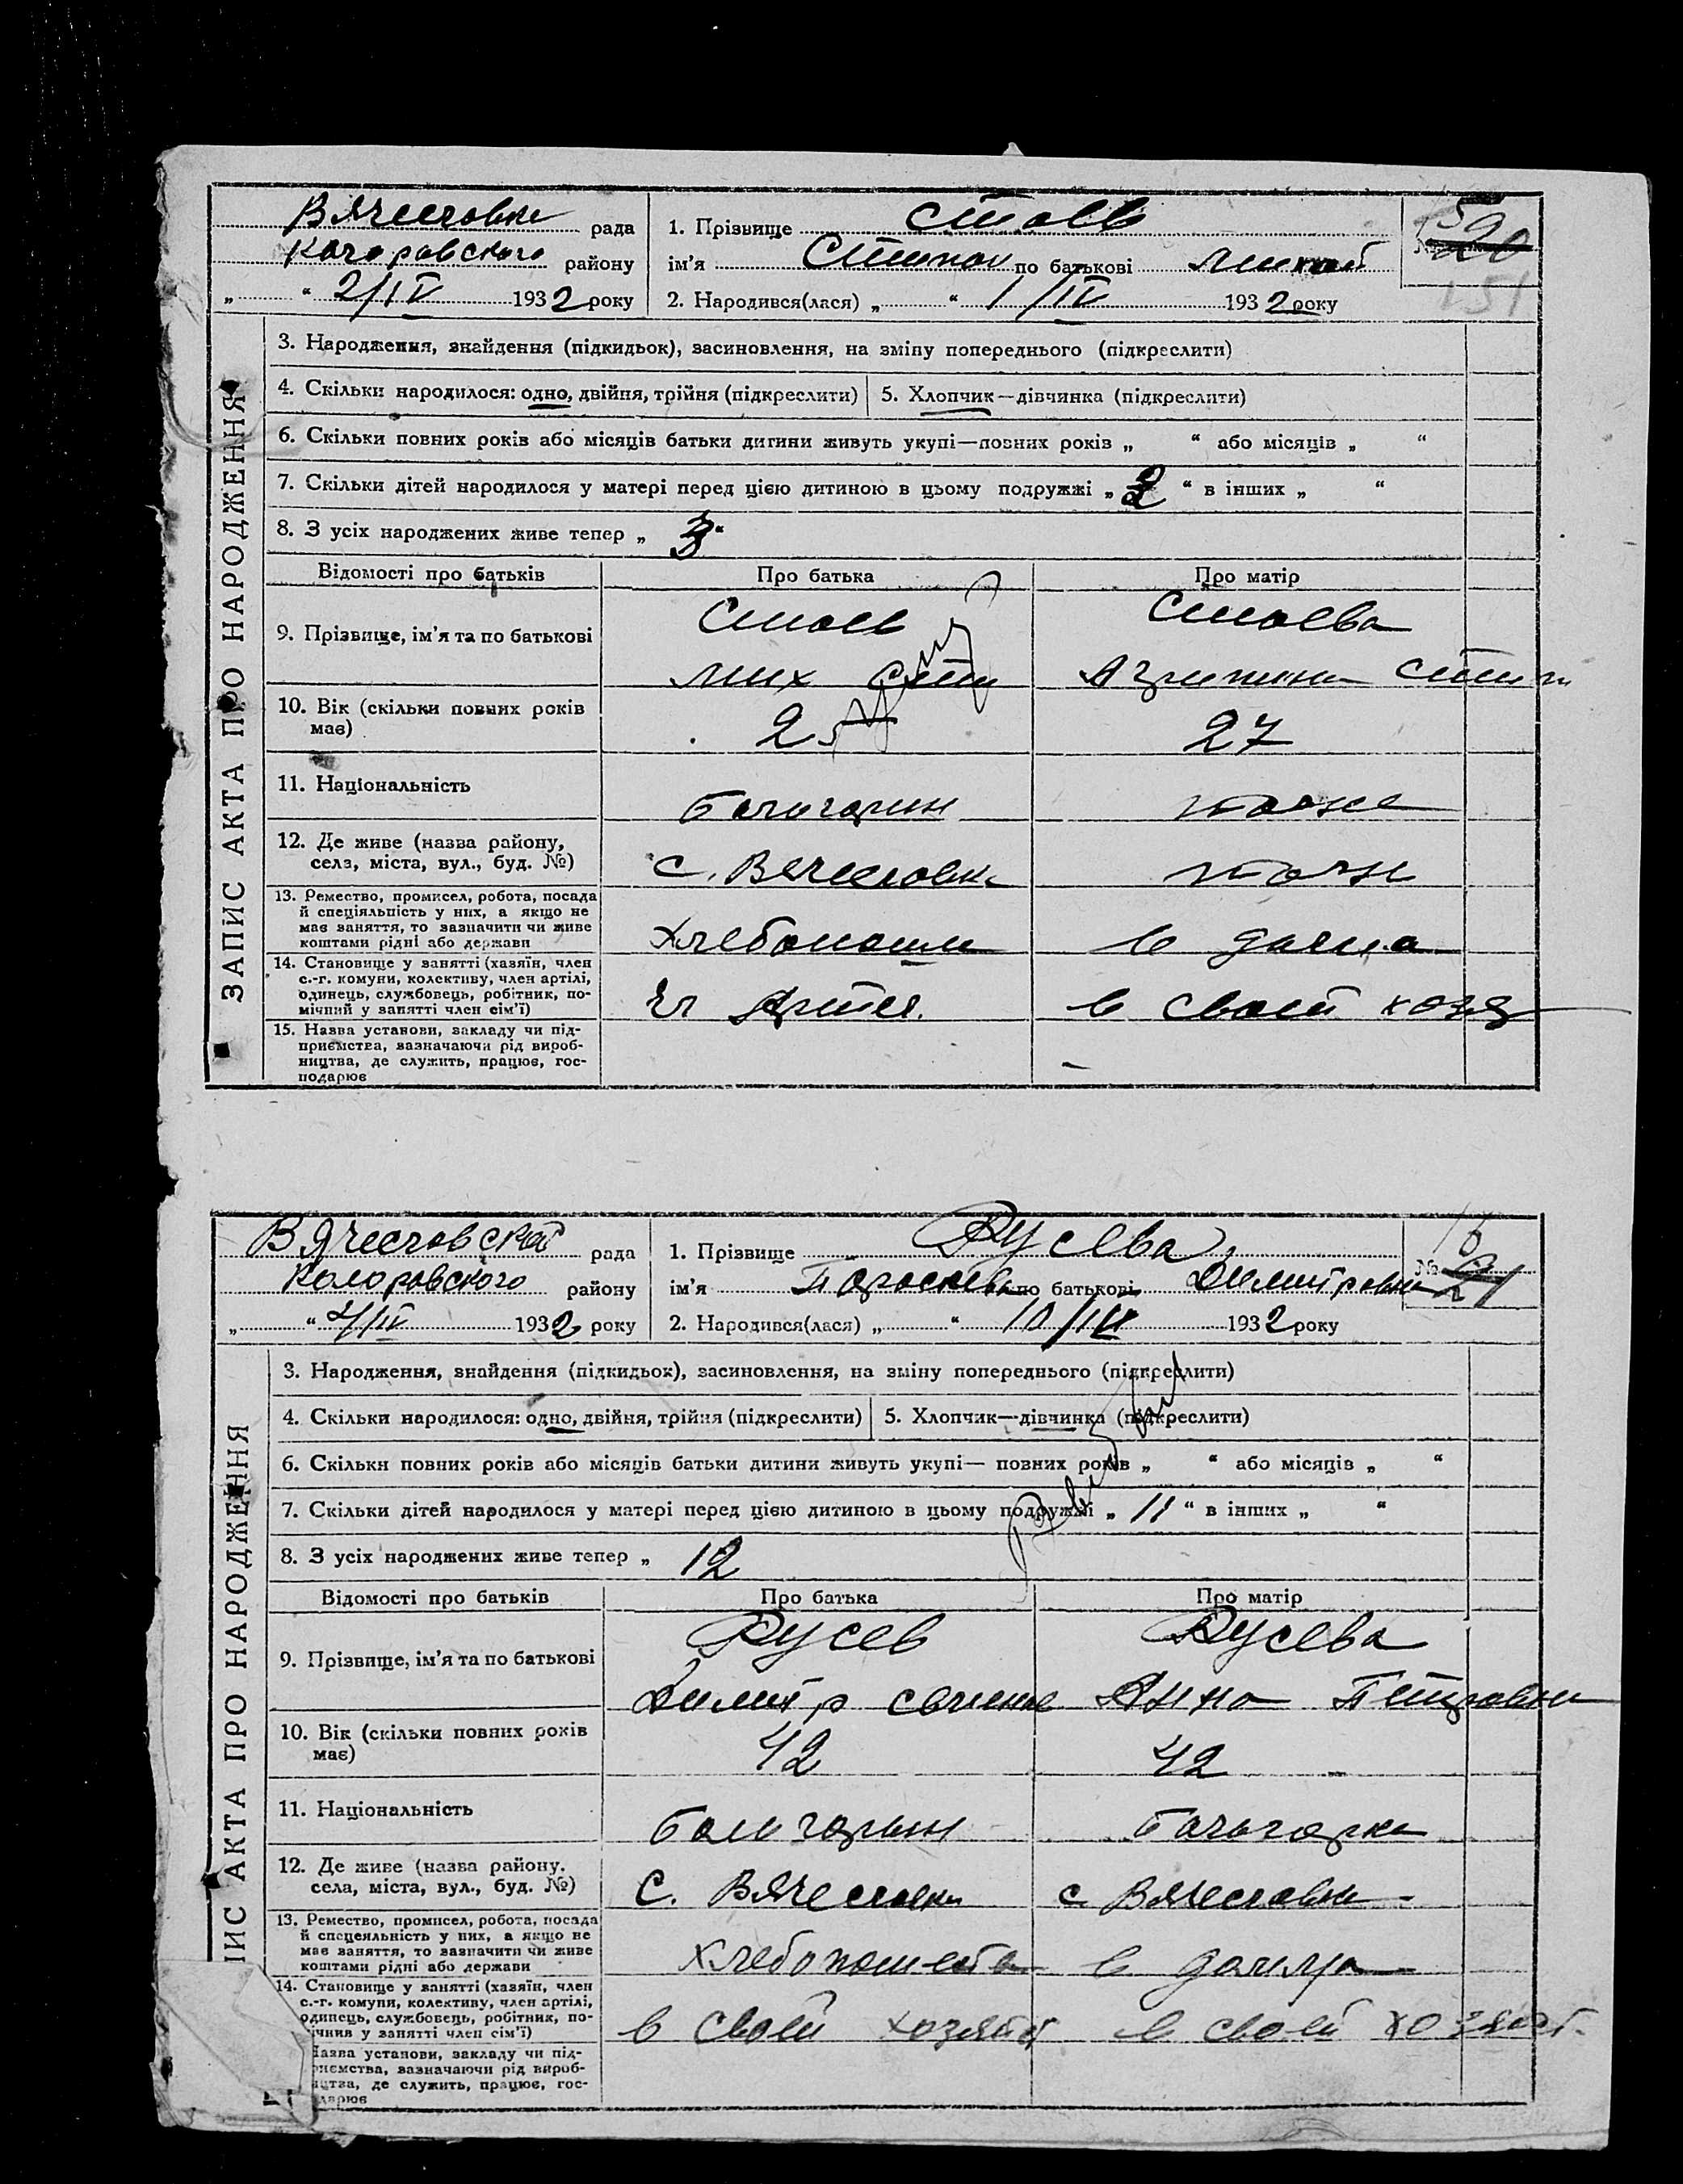 Вячесловка рада
Коларовского района району
„ “ 2/IV 1932 року
1. Прізвище Стоев
ім’я Степан по батькові
2. Народився(лася) „ “ 1/IV 1932 року
ЗАПИС АКТА ПРО НАРОДЖЕННЯ
3. Народження, знайдення (підкидьок), засиновлення, на зміну попереднього (підкреслити)
4. Скільки народилося: одно, двійня, трійня (підкреслити) 5. Хлопчик—дівчинка (підкреслити)
6. Скільки повних років або місяців батьки дитини живуть укупі—повних років „ “ або місяців „ “
7. Скільки дітей народилося у матері перед цією дитиною в цьому подружжі „ 2 “ в інших „ “
8. З усіх народжених живе тепер „ 3 “
Відомості про батьків Про батька Про матір
9. Прізвище, ім’я та по батькові Стоев Стоева
мих степ степ
10. Вік (скільки повних років має) 25 27
11. Національність болгарин тоже
12. Де живе (назва району, села, міста, вул., буд. №) с. Вячесловка тоже
13. Ремество, промисел, робота, посада
й спеціяльність у них, а якщо не
має заняття, то зазначити чи живе
коштами рідні або держави Хлебопаше в дома
14. Становище у занятті (хазяїн, член
с.-г. комуни, колективу, член артілі,
одинець, службовець, робітник, по-
мічний у занятті член сім’ї) чл Артел. в своей хозя
15. Назва установи, закладу чи під-
приємства, зазначаючи рід вироб-
ництва, де служить, працює, гос-
подарює
Вячесловской рада
Коларовского району
„ “ 4/IV 1932 року
1. Прізвище Русева
ім’я Парасковья по батькові Димитровна
№ 21
2. Народився(лася) „ “ 10/III 1932 року
ЗАПИС АКТА ПРО НАРОДЖЕННЯ
3. Народження, знайдення (підкидьок), засиновлення, на зміну попереднього (підкреслити)
4. Скільки народилося: одно, двійня, трійня (підкреслити) 5. Хлопчик—дівчинка (підкреслити)
6. Скільки повних років або місяців батьки дитини живуть укупі— повних років „ “ або місяців „ “
7. Скільки дітей народилося у матері перед цією дитиною в цьому подружжі „ 11 “ в інших „ “
8. З усіх народжених живе тепер „ 12
Відомості про батьків Про батька Про матір
9. Прізвище, ім’я та по батькові Русев Русева
Димитр Анна Петровна
10. Вік (скільки повних років має) 42 42
11. Національність болгарин болгарка
12. Де живе (назва району, села, міста, вул., буд. №) с. Вячесловка с. Вячесловка
13. Ремество, промисел, робота, посада
й спецеяльність у них, а якщо не
має заняття, то зазначити чи живе
коштами рідні або держави Хлебопашества в дома
14. Становище у занятті (хазяїн, член
с.-г. комуни, колективу, член артілі,
одинець, службовець, робітник, по-
мічний у занятті член сім’ї) в своей хозяйст в своей хозяйст.
Назва установи, закладу чи під-
приємства, зазначаючи рід вироб-
ництва, де служить, працює, гос-
подарює